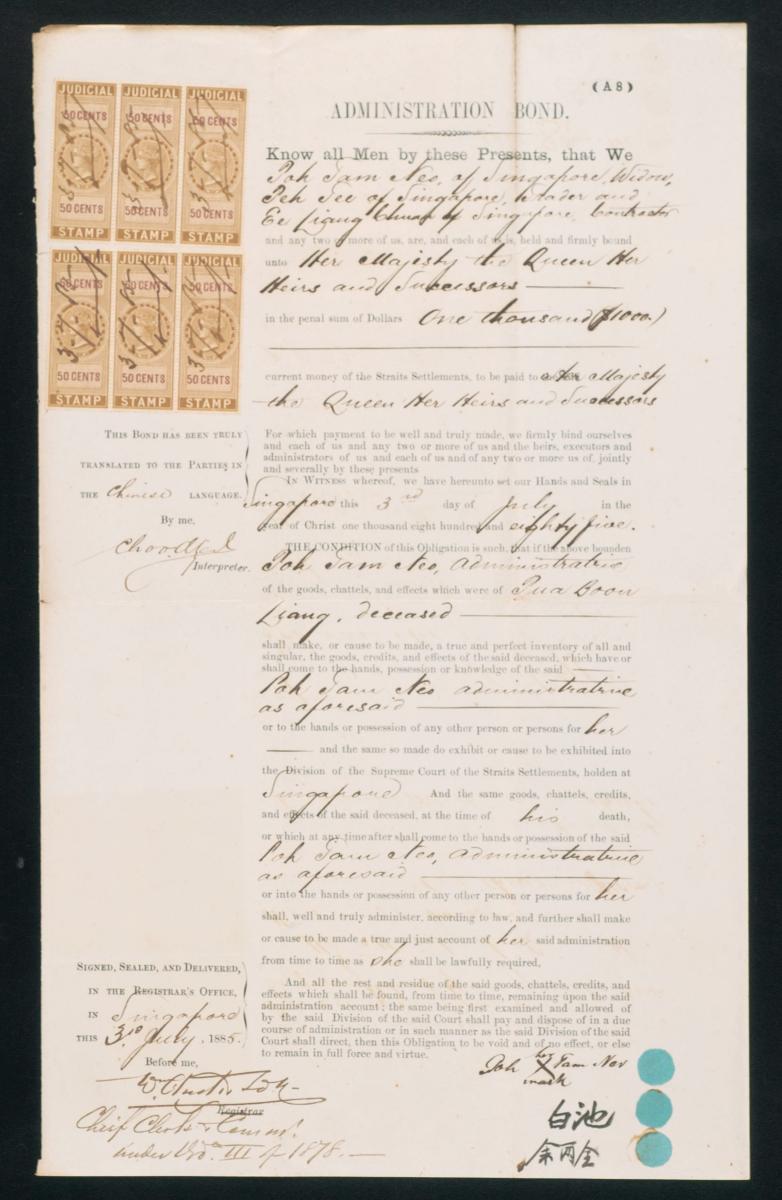 (A8)
ADMINISTRATION BOND.
JUDICIAL JUDICIAL JUDICIAL
50 CENTS 50 CENTS 50 CENTS
50 CENTS 50 CENTS 50 CENTS
STAMP STAMP STAMP
JUDICIAL JUDICIAL JUDICIAL
50 CENTS 50 CENTS 50 CENTS
50 CENTS 50 CENTS 50 CENTS
STAMP STAMP STAMP
Know all Men by these Presents, that We
Poh Tam Neo, of Singapore, Widow,
Peh Tee of Singapore, trader and
Ee Liang of Singapore, Contractor
and any two or more of us, are, and each of us is, held and firmly bound
unto Her Majesty the Queen Her
Heirs and Successors
in the penal sum of Dollars One thousand ($1000.)
current money of the Straits Settlements, to be paid to Her Majesty
the Queen Her Heirs and Successors
For which payment to be well and truly made, we firmly bind ourselves
and each of us and any two or more of us and the heirs, executors and
administrators of us and each of us and of any two or more us of, jointly
and severally by these presents
IN WITNESS whereof, we have hereunto set our Hands and Seals in
Singapore this 3rd day of July in the
year of Christ one thousand eight hundred and eighty five.
THIS BOND HAS BEEN TRULY
TRANSLATED TO THE PARTIES IN
THE Chinese LANGUAGE.
By me,
Interpreter.
THE CONDITION of this Obligation is such, that if the above bounden
Poh Tam Neo, administratrix
of the goods, chattels, and effects which were of Pua Boon
Liang, deceased
shall make, or cause to be made, a true and perfect inventory of all and
singular, the goods, credits, and effects of the said deceased, which have or
shall come to the hands, possession or knowledge of the said
Poh Tam Neo administratrix
as aforesaid
or to the hands or possession of any other person or persons for her
and the same so made do exhibit or cause to be exhibited into
the Division of the Supreme Court of the Straits Settlements, holden at
Singapore And the same goods, chattels, credits,
and effects of the said deceased, at the time of his death,
or which at any time after shall come to the hands or possession of the said
Poh Tam Neo, administratrix
as aforesaid
or into the hands or possession of any other person or persons for her
shall, well and truly administer, according to law, and further shall make
or cause to be made a true and just account of her said administration
from time to time as she shall be lawfully required.
And all the rest and residue of the said goods, chattels, credits, and
effects which shall be found, from time to time, remaining upon the said
administration account; the same being first examined and allowed of
by the said Division of the said Court shall pay and dispose of in a due
course of administration or in such manner as the said Division of the said
Court shall direct, then this Obligation to be void and of no effect, or else
to remain in full force and virtue.
SIGNED, SEALED, AND DELIVERED,
IN THE REGISTRAR'S OFFICE,
IN Singapore
THIS 3rd July. 1885.
Before me,
Registrar
Chief Clerk
under Ord. III of 1878.
Poh her X Tam Neo
mark
白池
余丙全